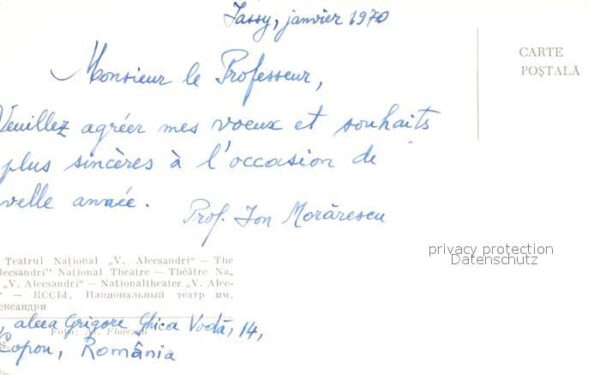 Jassy, janvier 1970
CARTE
POȘTALĂ
Monsieur le Professeur,
Veuillez agréer mes voeux et souhaits
plus sincères à l'occasion de
velle année.
Prof. Ion Morărescu
privacy protection
Datenschutz
Teatrul Național „V. Alecsandri" — The
lecsandri" National Theatre — Théâtre Na-
„V. Alecsandri" — Nationaltheater „V. Alec-
— ЯССЫ. Национальный театр им.
ександри
, aleea Grigore Ghica Vodă, 14,
Copou, România